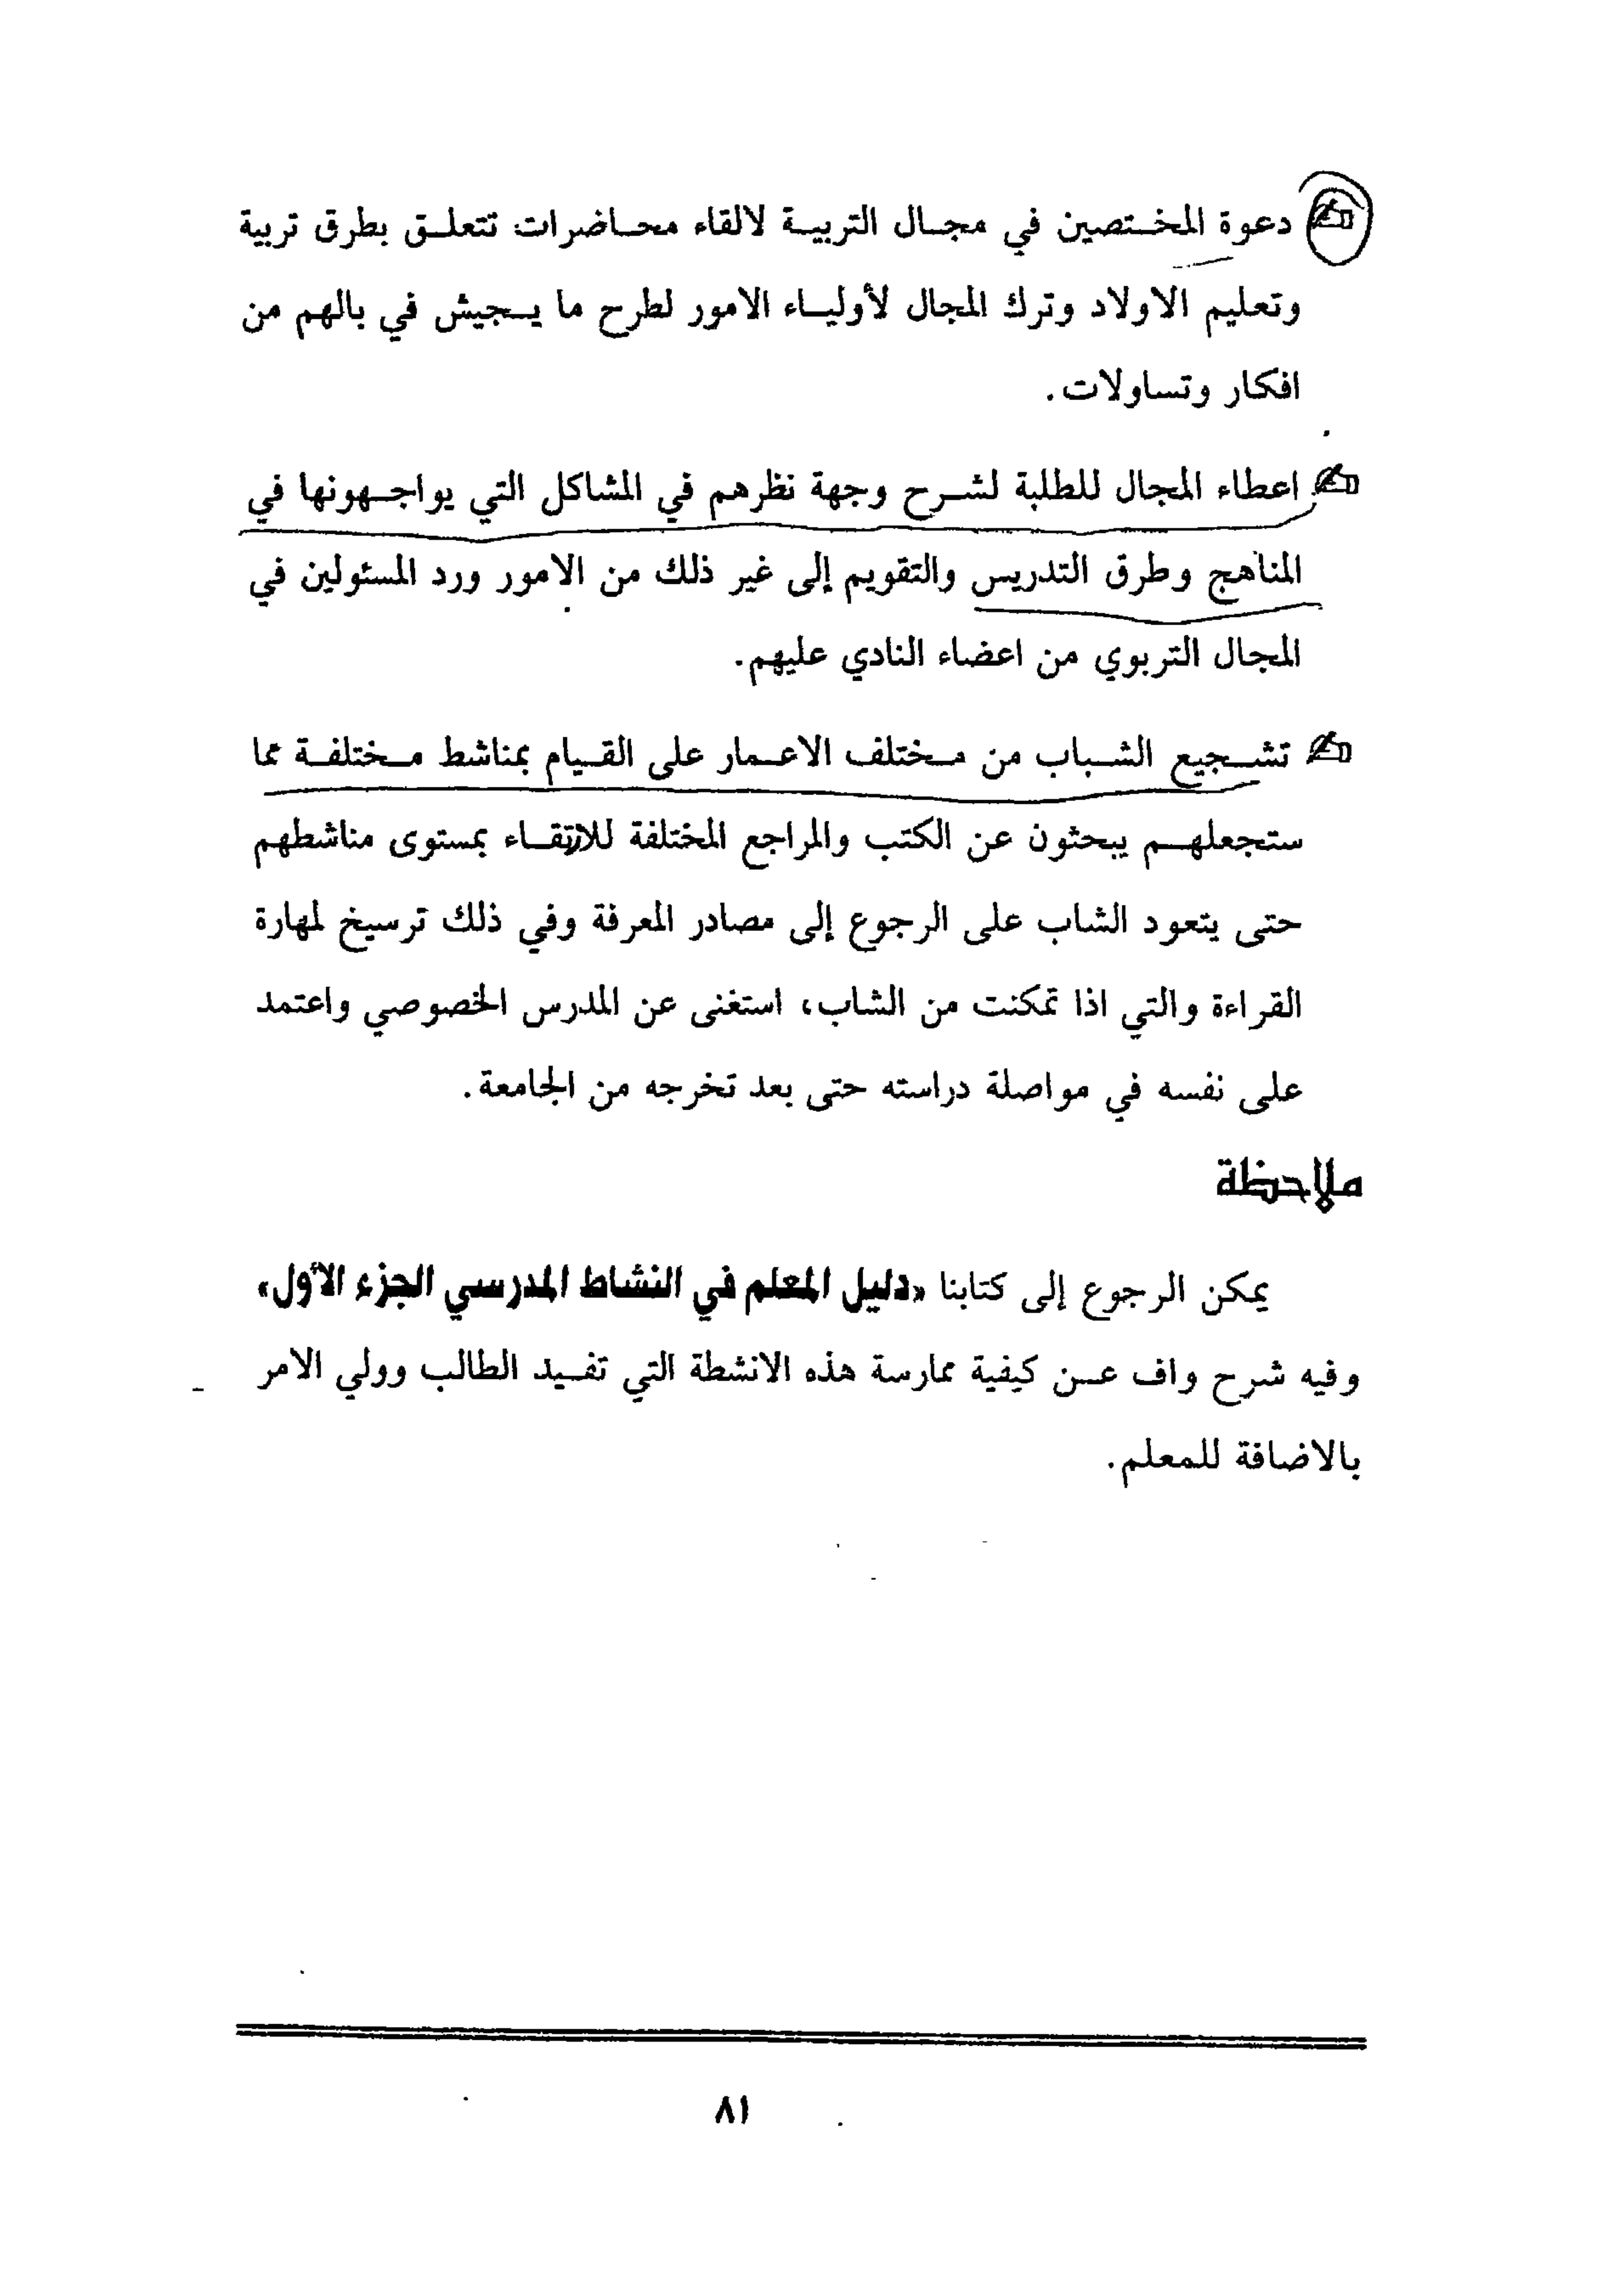 ✍ دعوة المختصين في مجال التربية لالقاء محاضرات تتعلق بطرق تربية
وتعليم الاولاد وترك المجال لأولياء الامور لطرح ما يجيش في بالهم من
افكار وتساولات.
✍ اعطاء المجال للطلبة لشرح وجهة نظرهم في المشاكل التي يواجهونها في
المناهج وطرق التدريس والتقويم إلى غير ذلك من الامور ورد المسئولين في
المجال التربوي من اعضاء النادي عليهم.
✍ تشجيع الشباب من مختلف الاعمار على القيام بمناشط مختلفة مما
ستجعلهم يبحثون عن الكتب والمراجع المختلفة للارتقاء بمستوى مناشطهم
حتى يتعود الشاب على الرجوع إلى مصادر المعرفة وفي ذلك ترسيخ لمهارة
القراءة والتي اذا تمكنت من الشاب، استغنى عن المدرس الخصوصي واعتمد
على نفسه في مواصلة دراسته حتى بعد تخرجه من الجامعة.
ملاحظة
يمكن الرجوع إلى كتابنا «دليل المعلم في النشاط المدرسي الجزء الأول»
وفيه شرح واف عن كيفية ممارسة هذه الانشطة التي تفيد الطالب وولي الامر
بالاضافة للمعلم.
٨١